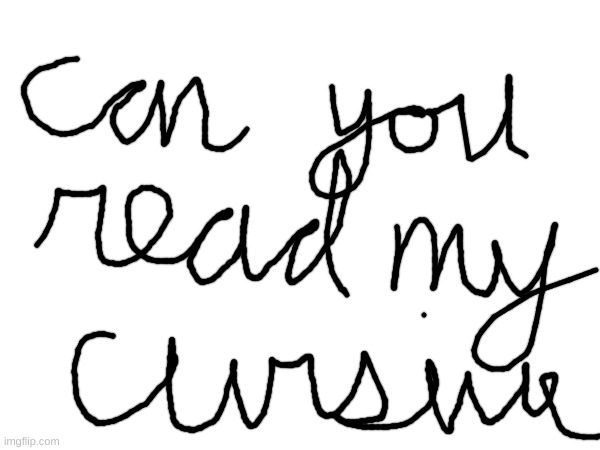 can you
read my
cursive
imgflip.com